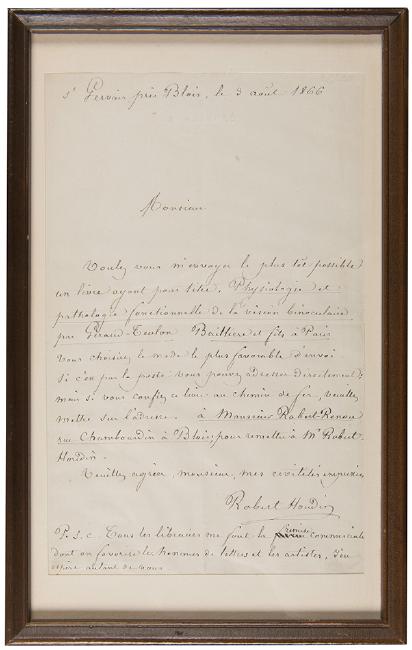 St Gervais près Blois, le 3 août 1866
Monsieur
Voulez vous m'envoyer le plus tôt possible
un livre ayant pour titre, Physiologie et
pathologie fonctionnelle de la vision binoculaire,
par Giraud-Teulon Baillière et fils à Paris
Vous choisirez le mode le plus favorable d'envoi
Si c'est par la poste vous pouvez adresser directement;
mais si vous confiez ce livre au chemin de fer, veuillez
mettre sur l'adresse. à Monsieur Robert-Renou
rue Chambourdin à Blois, pour remettre à Mr Robert-
Houdin.
Veuillez agréer, monsieur, mes civilités empressées
Robert Houdin
P. S. Tous les libraires me font la remise commerciale
dont on favorise les hommes de lettres et les artistes, j'en
espère autant de vous